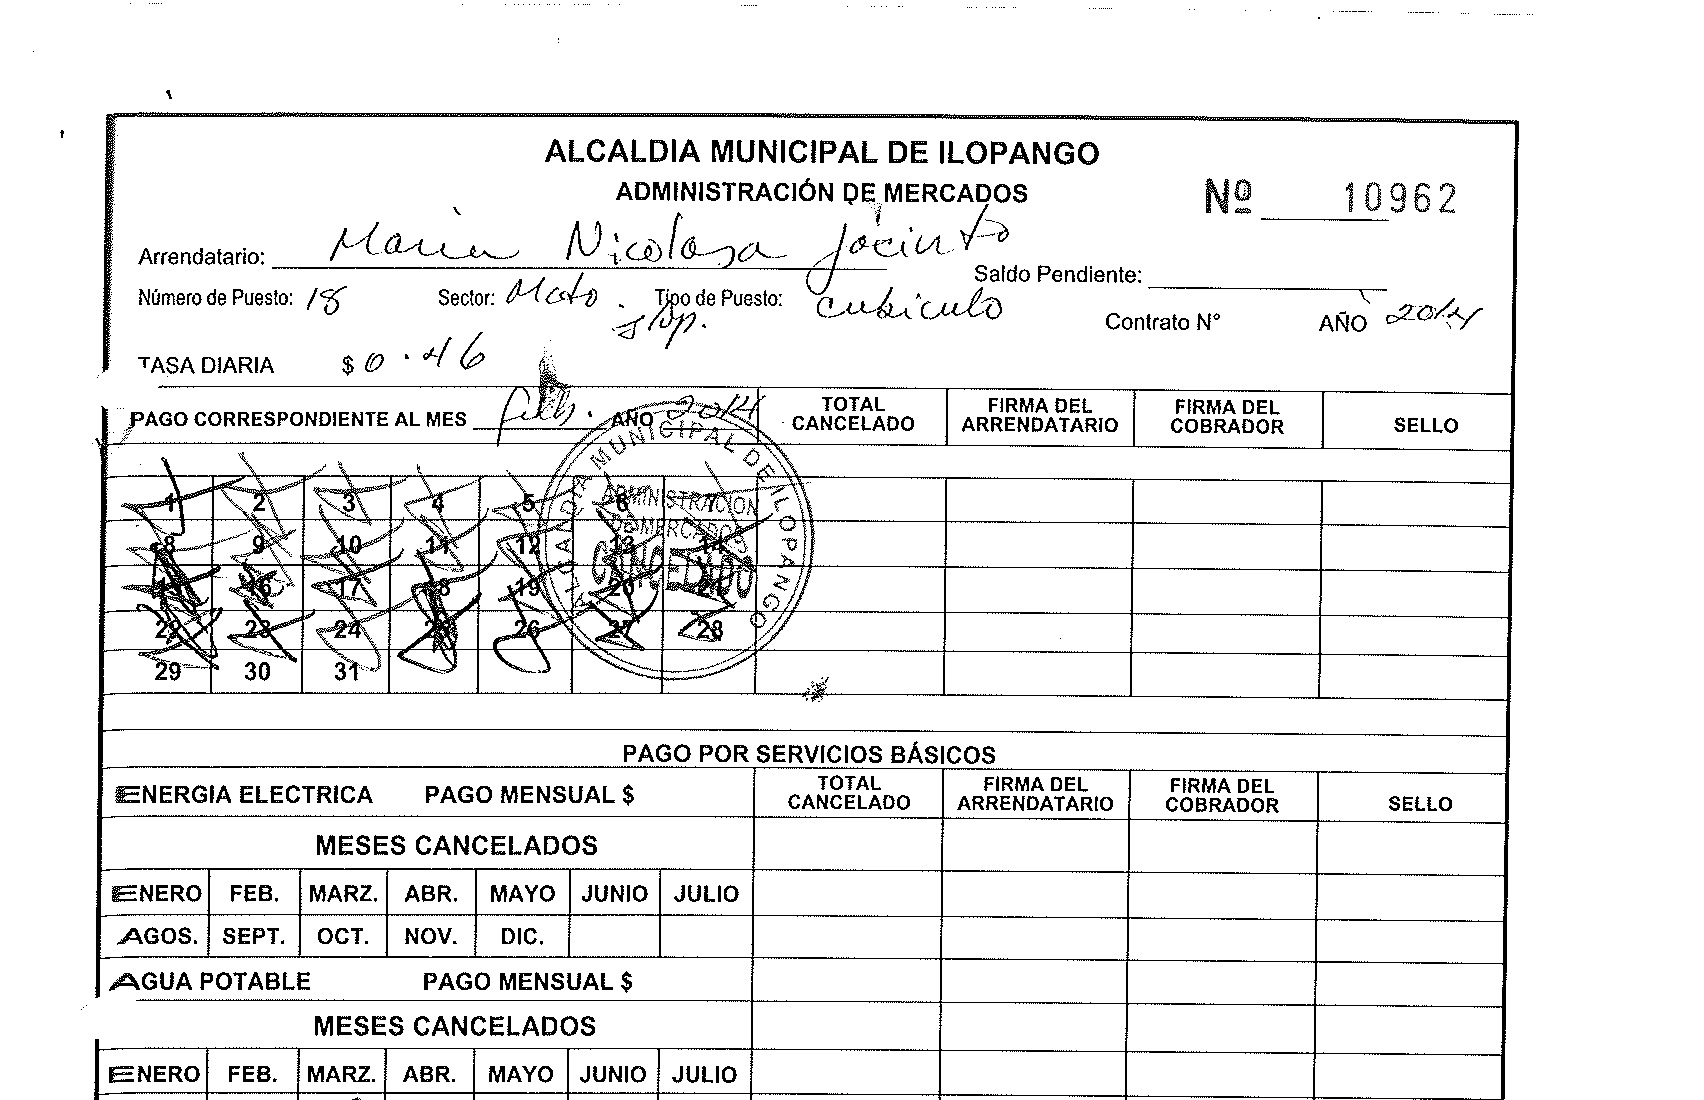 ALCALDIA MUNICIPAL DE ILOPANGO
ADMINISTRACIÓN DE MERCADOS
Nº 10962
Arrendatario: Maria Nicolasa Jacinto
Saldo Pendiente:
Número de Puesto: 18 Sector: Tipo de Puesto: cubiculo
Contrato N° AÑO 2014
TASA DIARIA $ 0.46
PAGO CORRESPONDIENTE AL MES feb. AÑO 2014
TOTAL CANCELADO
FIRMA DEL ARRENDATARIO
FIRMA DEL COBRADOR
SELLO
1 2 3 4 5 6 7
8 9 10 11 12 13 14
15 16 17 18 19 20 21
22 23 24 25 26 27 28
29 30 31
ALCALDIA MUNICIPAL DE ILOPANGO
ADMINISTRACION
DE MERCADOS
CANCELADO
PAGO POR SERVICIOS BÁSICOS
ENERGIA ELECTRICA PAGO MENSUAL $
TOTAL CANCELADO
FIRMA DEL ARRENDATARIO
FIRMA DEL COBRADOR
SELLO
MESES CANCELADOS
ENERO FEB. MARZ. ABR. MAYO JUNIO JULIO
AGOS. SEPT. OCT. NOV. DIC.
AGUA POTABLE PAGO MENSUAL $
MESES CANCELADOS
ENERO FEB. MARZ. ABR. MAYO JUNIO JULIO